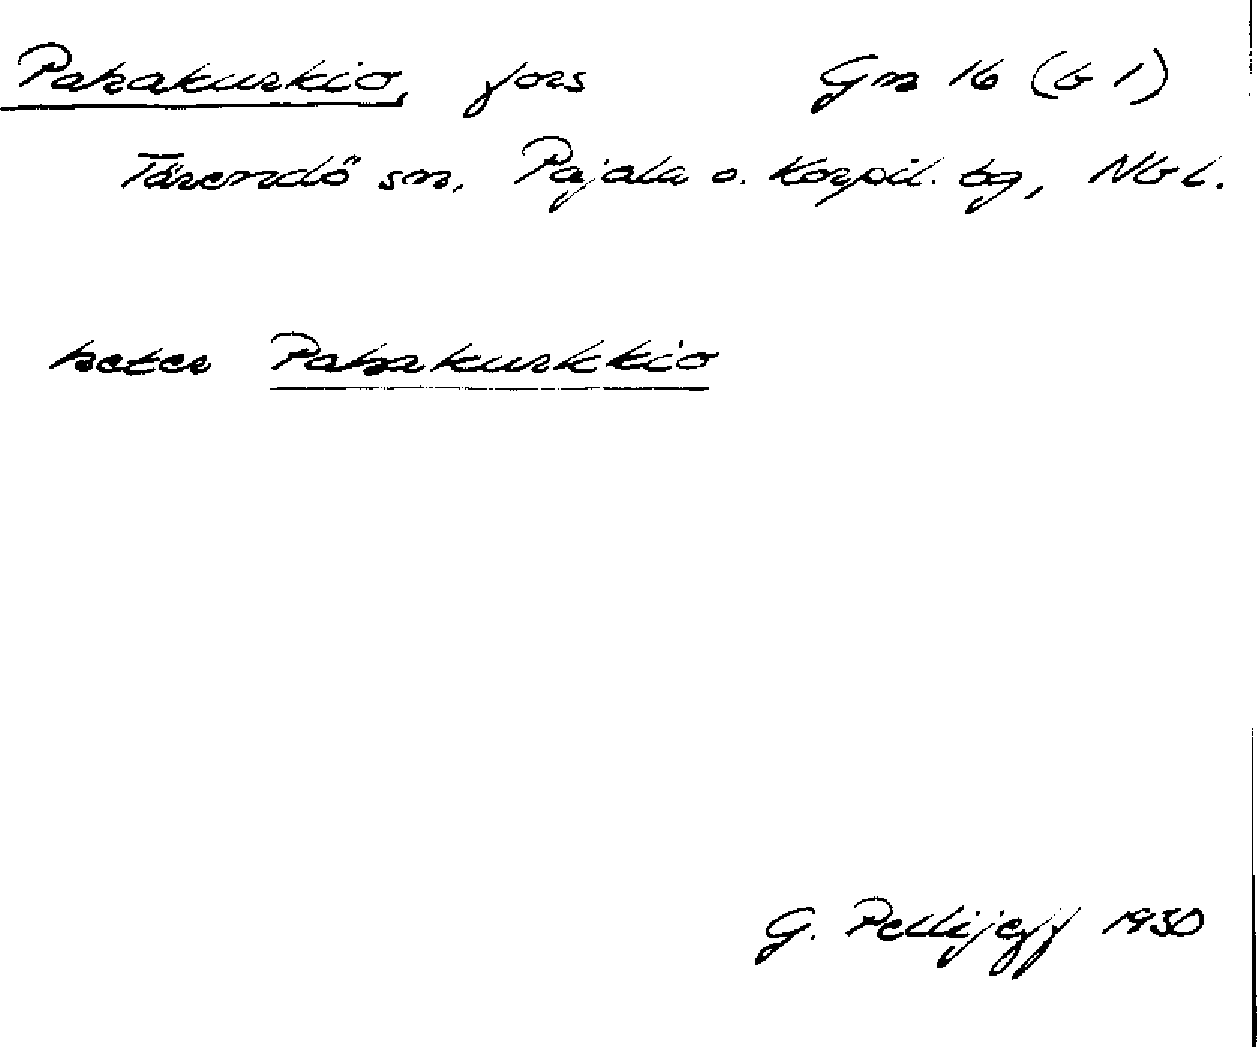 Pahakurkio, fors Gm 16 (b 1)
Tärendö sn, Pajala o. Korpil. tg, Nb l.
heter Pahakurkkio
G. Pellijeff 1950